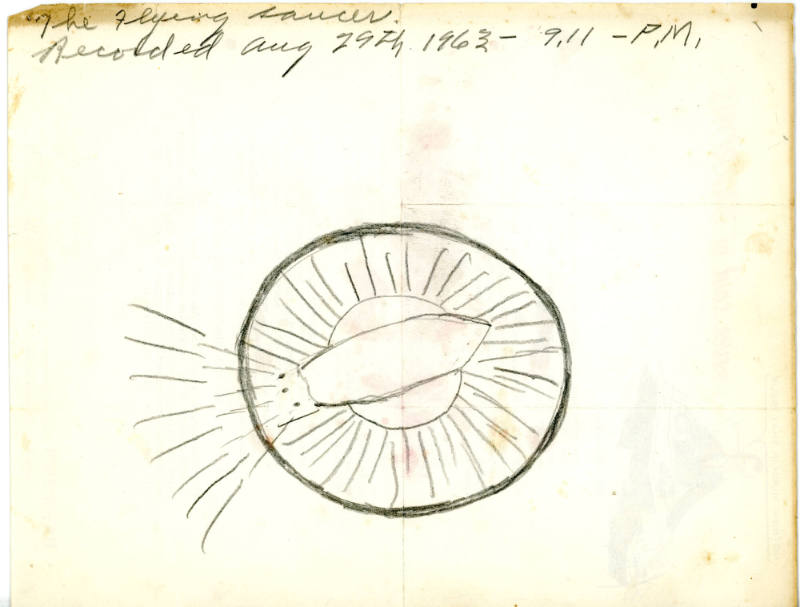 "The Flying saucer.
Recorded Aug 29th 1963 - 9,11 - P,M,